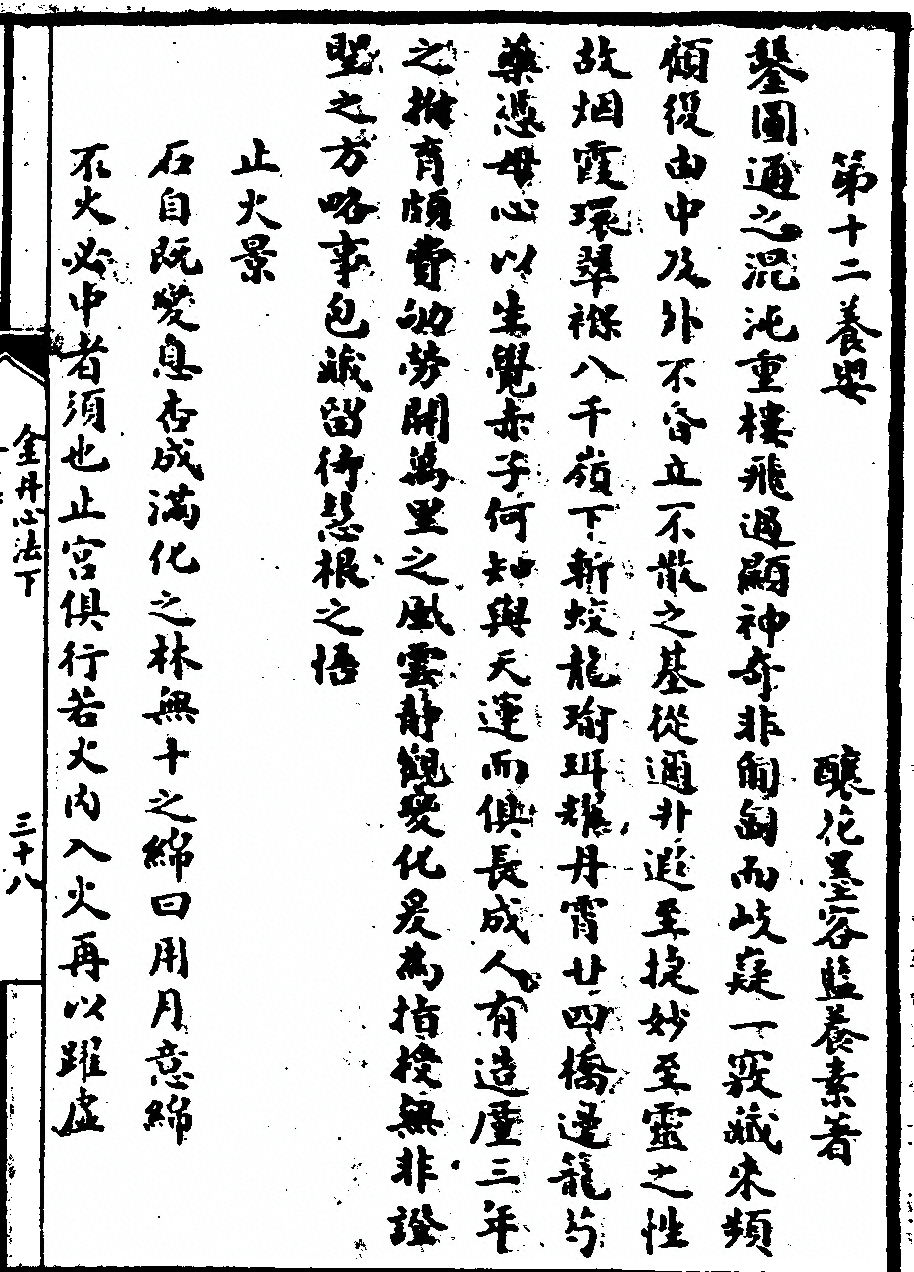 第十二養嬰
釀花墨客藍養素著
鑿圖通之混沌重樓飛過顯神奇非匍匐而岐嶷一竅藏來頻
頻復由中及外不昏立不散之基從邇非遐至捷妙至靈之性
故烟霞環翠襁八千嶺下斬蛟龍瑜珥耀丹霄廿四橋邊龍芍
藥慈母心以生覺赤子何知與天運而俱長成人有造產三年
之推育頗費劬勞開萬里之風雲靜觀變化爰為指授無非證
聖之方略事包藏留衍慧根之悟
止火景
石自既變息杏成滿化之林無十之綿曰用月意綿
不火必中者須也止宮俱行若火內入火再以躍虛
金丹心法下
三十八